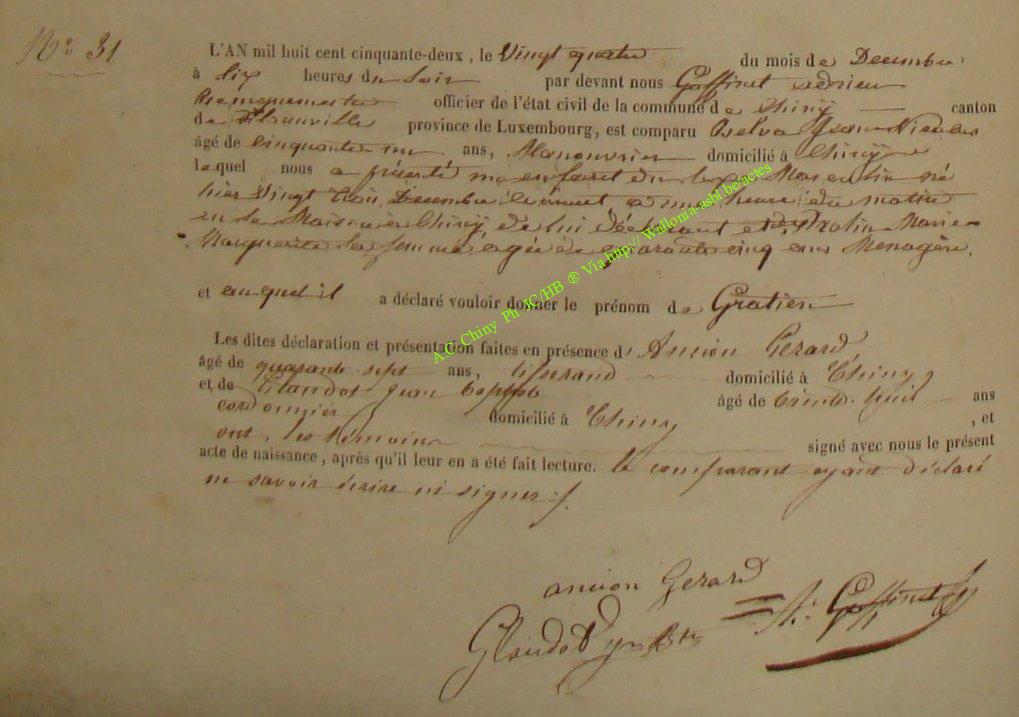 N° 31
L'AN mil huit cent cinquante-deux, le Vingt quatre du mois de Decembre
à Six heures du Soir par devant nous Goffinet adrien
Bourguemestre officier de l'état civil de la commune de Chiny canton
de Florenville province de Luxembourg, est comparu Jean Nicolas
âgé de Cinquante un ans, Manouvrier domicilié à Chiny
lequel nous a présenté un enfant du sexe Masculin né
hier Vingt trois Decembre courant a une heure du matin
en sa Maison a Chiny de lui déclarant et de Marie
Marguerite sa femme agée de quarante cinq ans Menagère.
et auquel il a déclaré vouloir donner le prénom de Gratien
Les dites déclaration et présentation faites en présence d'Ancion Gerard,
âgé de quarante sept ans, tisserand domicilié à Chiny,
et de Glaudot Jean baptiste âgé de trente huit ans
cordonnier domicilié à Chiny , et
ont, les témoins signé avec nous le présent
acte de naissance, après qu'il leur en a été fait lecture. le comparant ayant déclaré
ne savoir écrire ni signer ./.
ancion Gerard
Glaudot Jn Bte A: Goffinet
A.C. Chiny Ph. JC/HB ® Via http:// Wallonia-asbl.be/actes